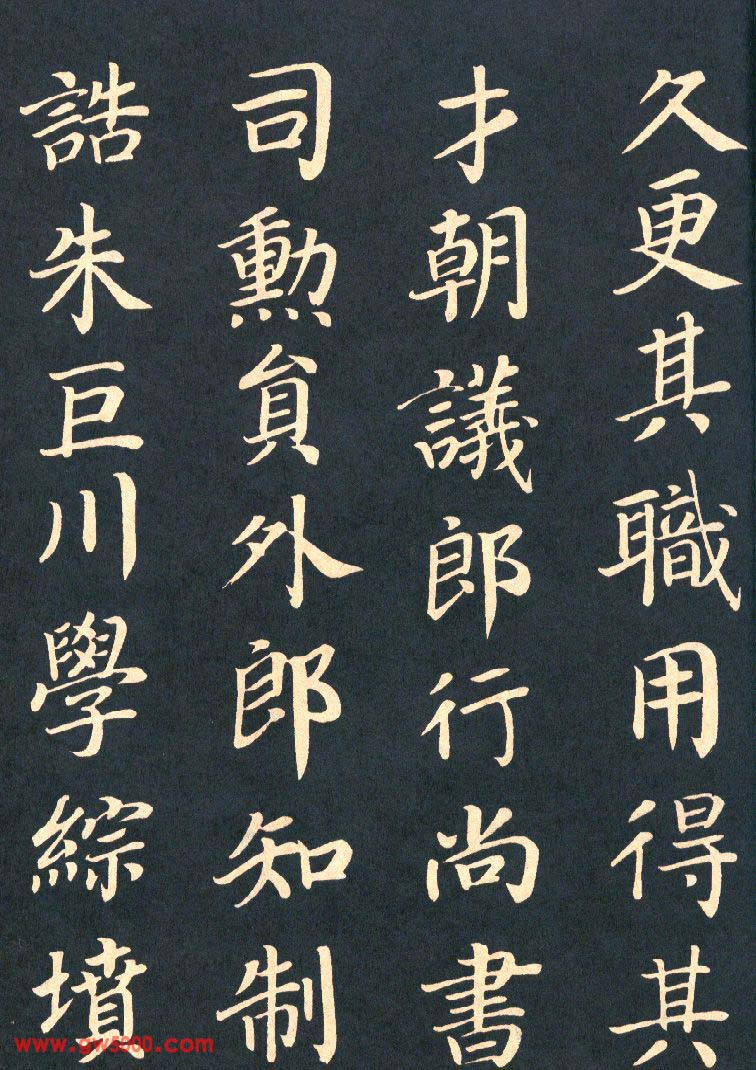 久更其職用得其
才朝議郎行尚書
司勲員外郎知制
誥朱巨川學綜墳
www.gw5000.com